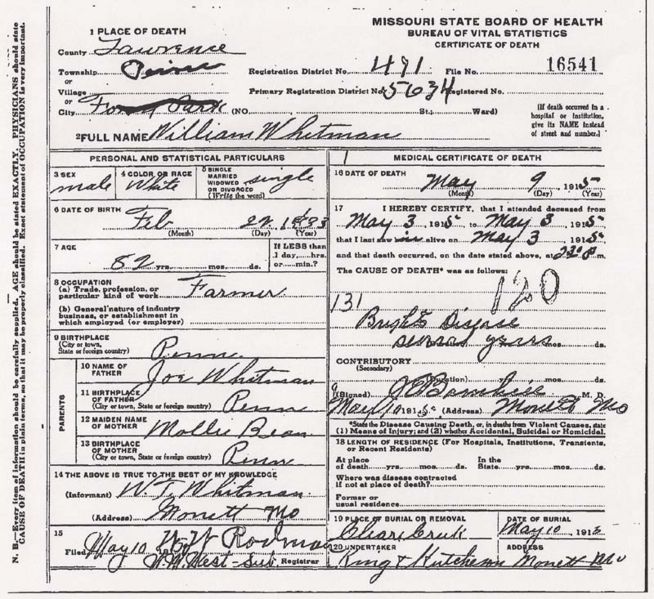 MISSOURI STATE BOARD OF HEALTH
BUREAU OF VITAL STATISTICS
CERTIFICATE OF DEATH
1 PLACE OF DEATH
County Lawrence
Township
or
Village
or
City
Registration District No. 491 File No. 16541
Primary Registration District No. 5634 Registered No.
(NO. St.; Ward)
(If death occurred in a hospital or institution, give its NAME instead of street and number.)
2 FULL NAME William Whitman
PERSONAL AND STATISTICAL PARTICULARS
3 SEX male
4 COLOR OR RACE White
5 SINGLE MARRIED WIDOWED OR DIVORCED (Write the word) single
6 DATE OF BIRTH Feb 22 1833
(Month) (Day) (Year)
7 AGE 82 yrs. mos. ds.
If LESS than 1 day, hrs. or min.?
8 OCCUPATION
(a) Trade, profession, or particular kind of work Farmer
(b) General nature of industry business, or establishment in which employed (or employer)
9 BIRTHPLACE (City or town, State or foreign country) Penn
PARENTS
10 NAME OF FATHER Joe Whitman
11 BIRTHPLACE OF FATHER (City or town, State or foreign country) Penn
12 MAIDEN NAME OF MOTHER Mollie Bean
13 BIRTHPLACE OF MOTHER (City or town, State or foreign country) Penn
14 THE ABOVE IS TRUE TO THE BEST OF MY KNOWLEDGE
(Informant) W. T. Whitman
(Address) Monett Mo
15
Filed May 10 191 W W Rodman
Registrar
MEDICAL CERTIFICATE OF DEATH
16 DATE OF DEATH May 9 1915
(Month) (Day) (Year)
17 I HEREBY CERTIFY, that I attended deceased from
May 3, 1915 to May 3, 1915
that I last saw alive on May 3 1915
and that death occurred, on the date stated above, at m.
The CAUSE OF DEATH* was as follows:
120
131
Brights Disease
several years
mos. ds.
CONTRIBUTORY
(Secondary)
(Signed) M. D.
May 10 1915 (Address) Monett Mo
*State the Disease Causing Death, or, in deaths from Violent Causes, state (1) Means of Injury; and (2) whether Accidental, Suicidal or Homicidal.
18 LENGTH OF RESIDENCE (For Hospitals, Institutions, Transients, or Recent Residents)
At place of death yrs. mos. ds. In the State yrs. mos. ds.
Where was disease contracted if not at place of death?
Former or usual residence
19 PLACE OF BURIAL OR REMOVAL
DATE OF BURIAL
May 10, 1915
20 UNDERTAKER
ADDRESS
Monett Mo
N. B.—Every item of information should be carefully supplied. AGE should be stated EXACTLY. PHYSICIANS should state
CAUSE OF DEATH in plain terms, so that it may be properly classified. Exact statement of OCCUPATION is very important.